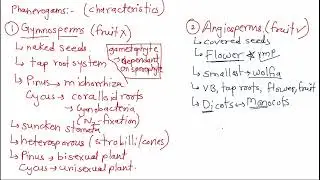 Phanerogams:- (characteristics)
① Gymnosperms (fruit X)
↳ naked seeds.
↳ tap root system
gametophyte
dependant
on sporophyte
↳ Pinus → michorrhiza
Cycus → coralloid roots
↳ Cynobacteria
(N₂-fixation)
↳ suncken stomata
↳ heterosporous (strobilli/cones)
↳ Pinus → bisexual plant
Cycus → unisexual plant.
② Angiosperms (fruit ✓)
↳ covered seeds
↳ Flower * imp
↳ smallest → wolfia
↳ VB, tap roots, flower, fruit
↳ Dicots → Monocots.